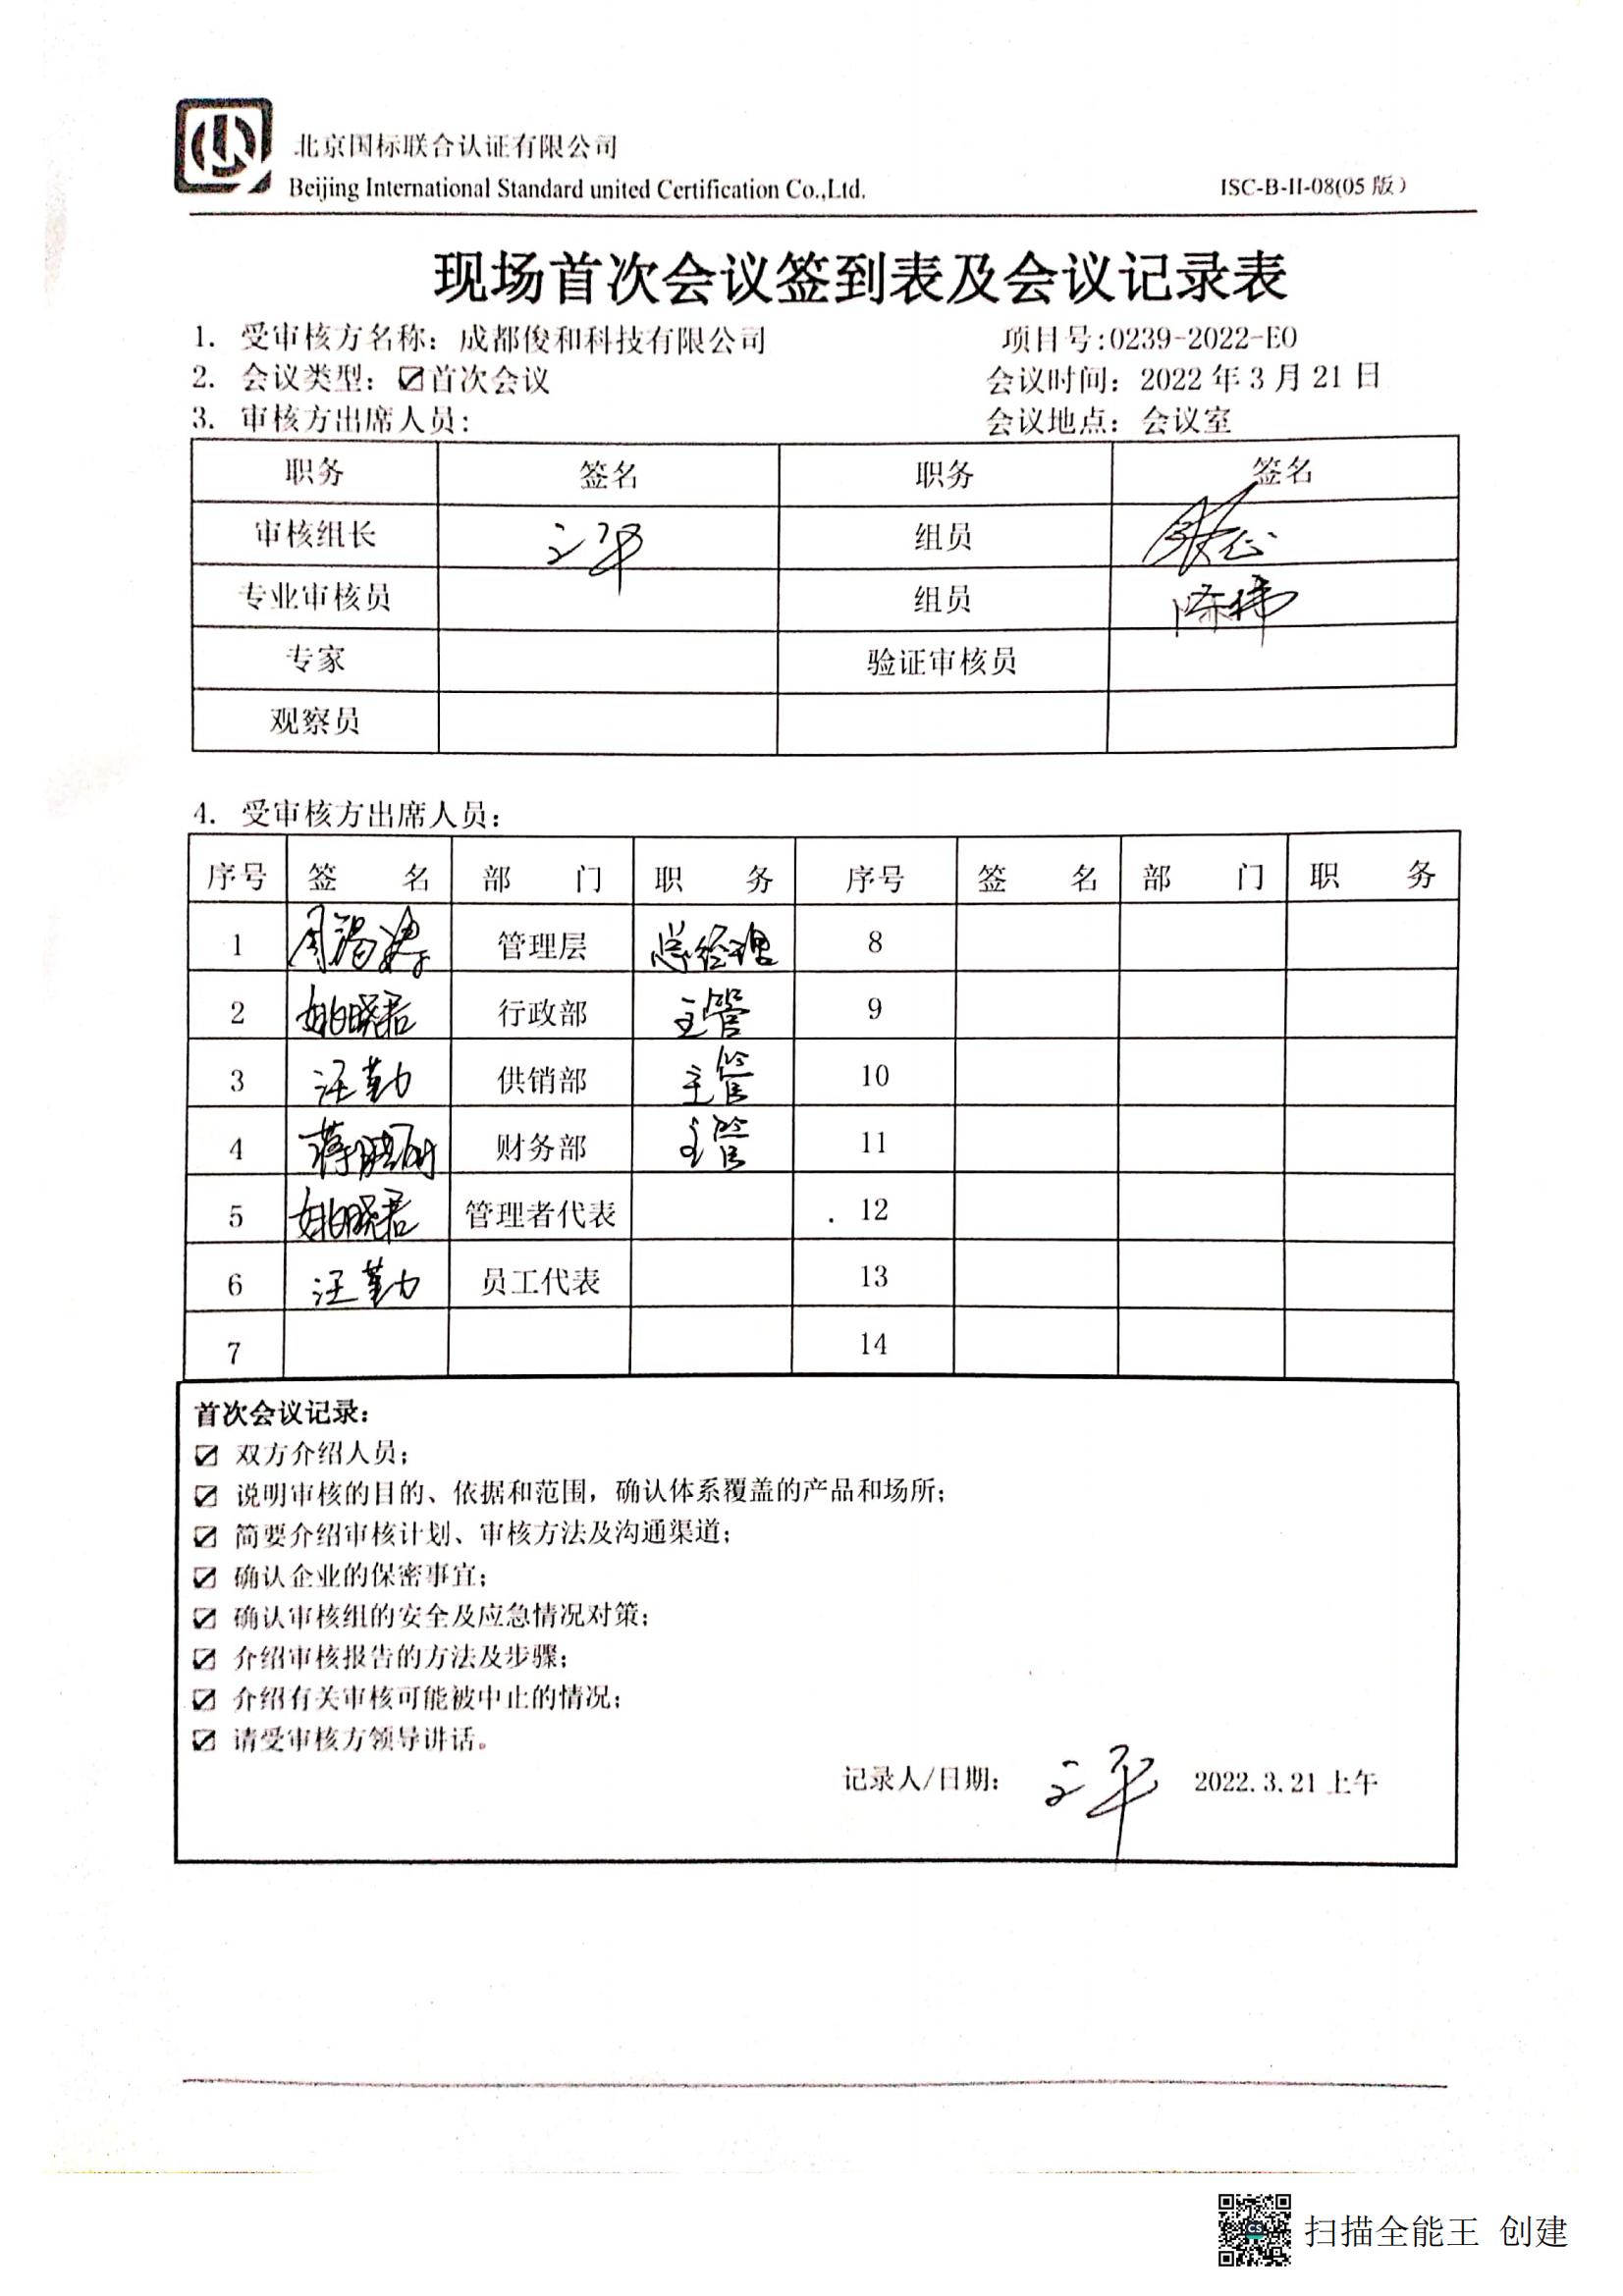 北京国标联合认证有限公司
Beijing International Standard united Certification Co.,Ltd.
ISC-B-II-08(05 版)
现场首次会议签到表及会议记录表
1. 受审核方名称：成都俊和科技有限公司 项目号:0239-2022-EO
2. 会议类型：☑首次会议 会议时间：2022 年 3 月 21 日
3. 审核方出席人员： 会议地点：会议室
职务 签名 职务 签名
审核组长 王平 组员
专业审核员 组员
专家 验证审核员
观察员
4. 受审核方出席人员：
序号 签 名 部 门 职 务 序号 签 名 部 门 职 务
1 管理层 总经理 8
2 姚晓君 行政部 主管 9
3 汪勤 供销部 主管 10
4 财务部 主管 11
5 姚晓君 管理者代表 12
6 汪勤 员工代表 13
7 14
首次会议记录：
☑ 双方介绍人员；
☑ 说明审核的目的、依据和范围，确认体系覆盖的产品和场所；
☑ 简要介绍审核计划、审核方法及沟通渠道；
☑ 确认企业的保密事宜；
☑ 确认审核组的安全及应急情况对策；
☑ 介绍审核报告的方法及步骤；
☑ 介绍有关审核可能被中止的情况；
☑ 请受审核方领导讲话。
记录人/日期： 王平 2022.3.21 上午
CS
扫描全能王 创建